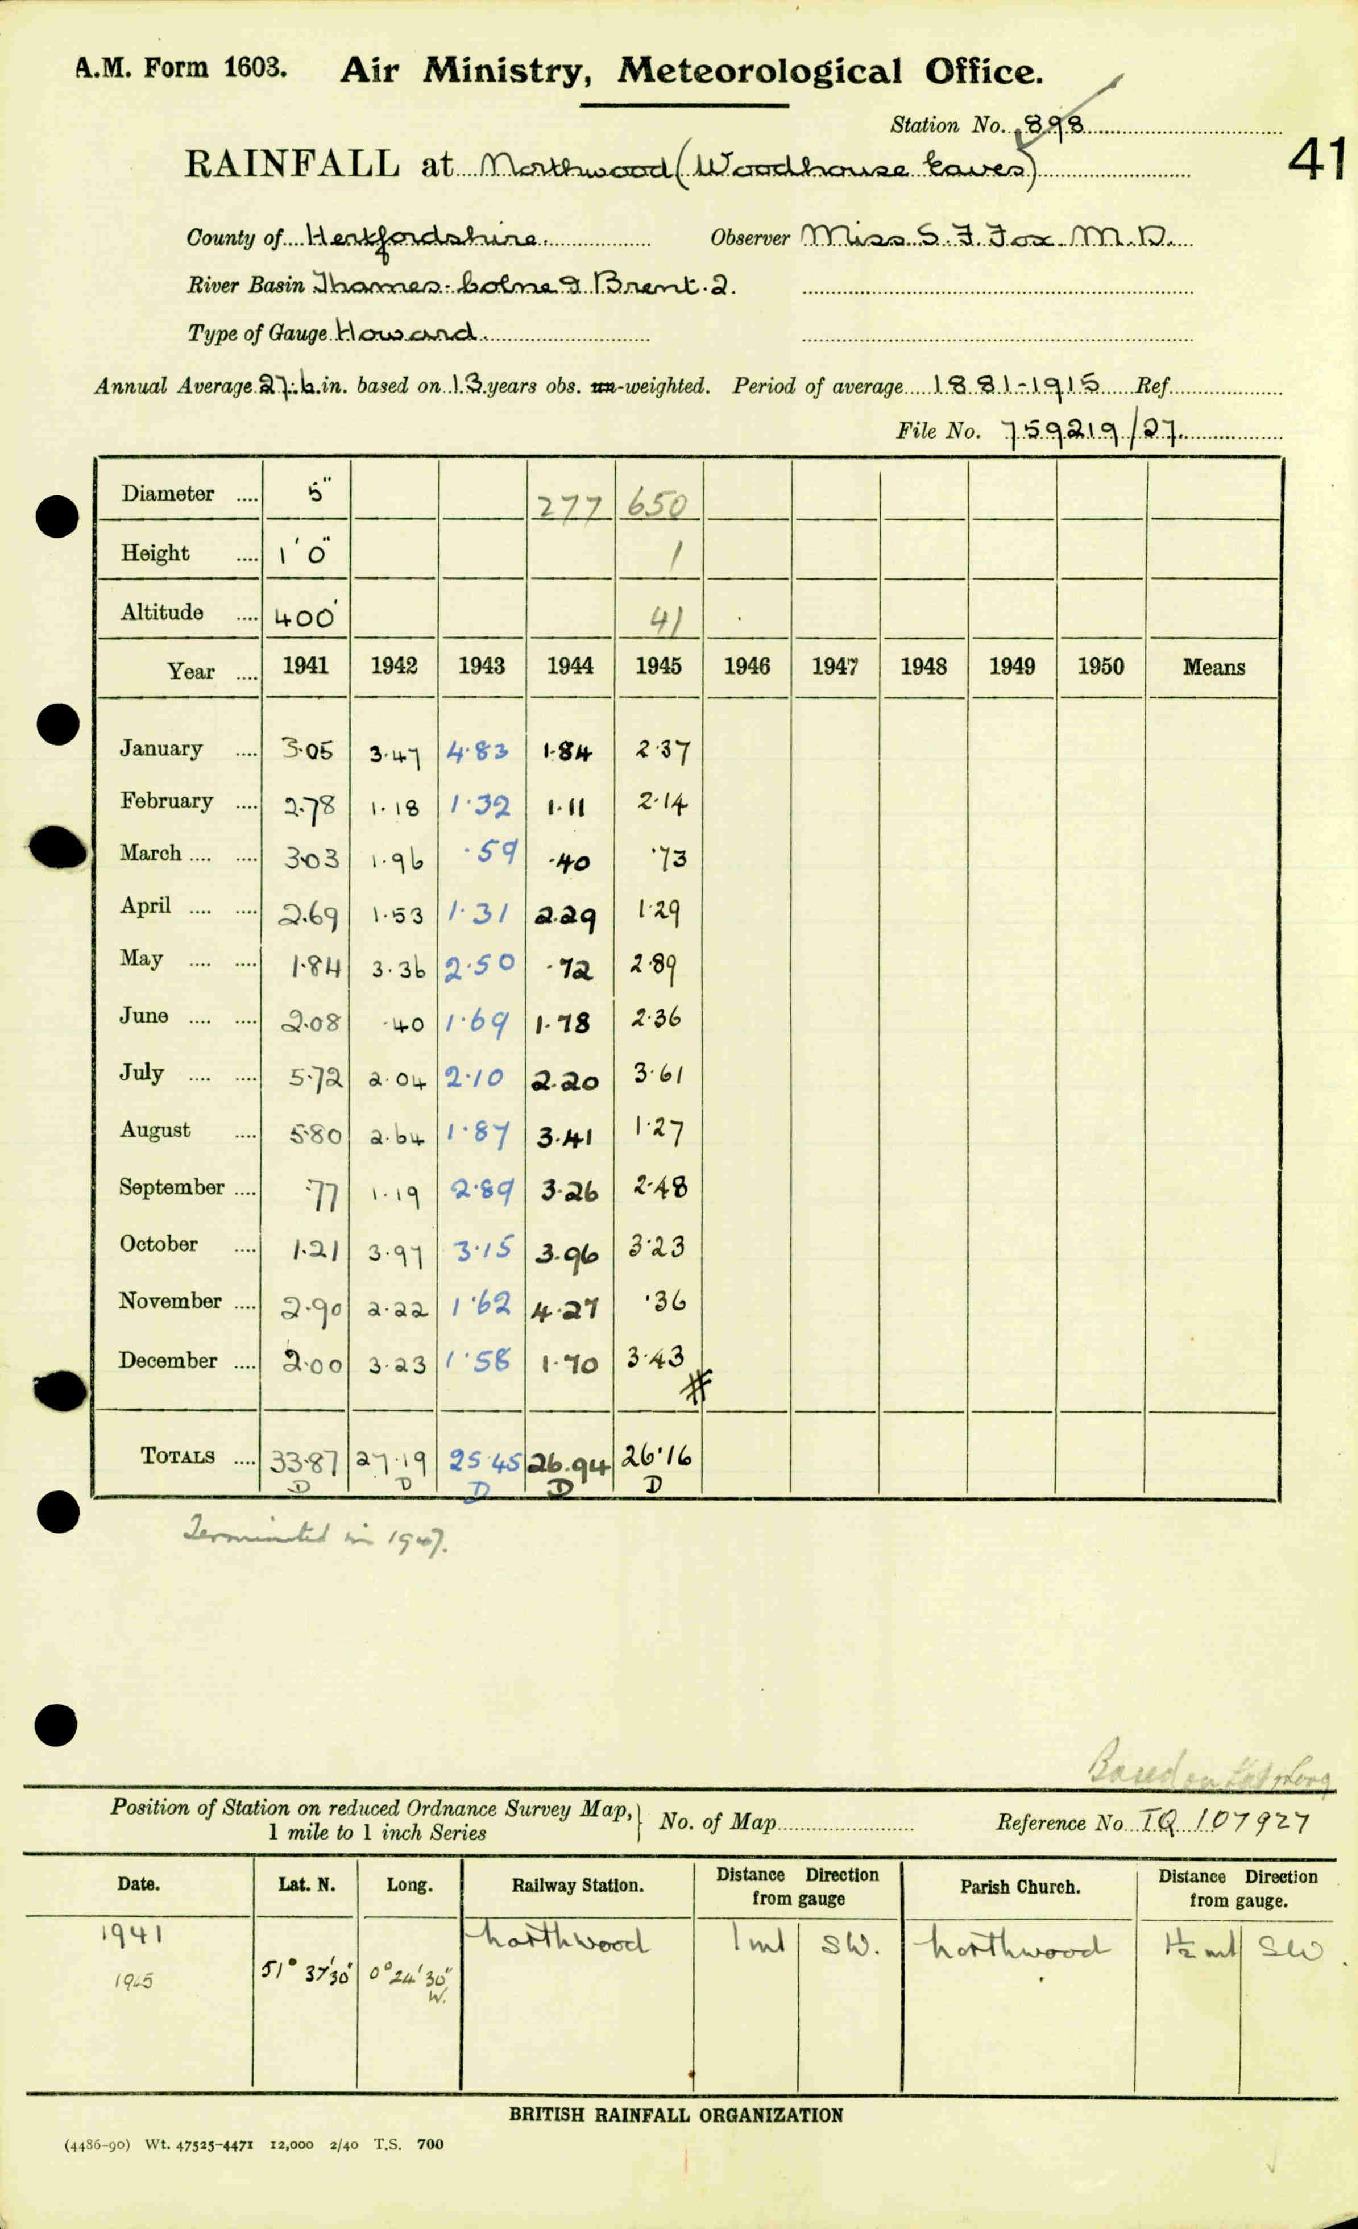 A.M. Form 1603. Air Ministry, Meteorological Office.
Station No. 898
41
RAINFALL at Northwood (Woodhouse Eaves)
County of Hertfordshire. Observer Miss S. F. Fox M.D.
River Basin Thames-Colne & Brent. 2.
Type of Gauge Howard.
Annual Average 27.6 in. based on 13 years obs. un-weighted. Period of average 1881-1915 Ref.
File No. 759219/27.
Diameter .... 5" 277 650
Height .... 1' 0" 1
Altitude .... 400' 41
Year .... 1941 1942 1943 1944 1945 1946 1947 1948 1949 1950 Means
January .... 3.05 3.47 4.83 1.84 2.37
February .... 2.78 1.18 1.32 1.11 2.14
March .... .... 3.03 1.96 .59 .40 .73
April .... .... 2.69 1.53 1.31 2.29 1.29
May .... .... 1.84 3.36 2.50 .72 2.89
June .... .... 2.08 .40 1.69 1.78 2.36
July .... .... 5.72 2.04 2.10 2.20 3.61
August .... 5.80 2.64 1.87 3.41 1.27
September .... .77 1.19 2.89 3.26 2.48
October .... 1.21 3.97 3.15 3.96 3.23
November .... 2.90 2.22 1.62 4.27 .36
December .... 2.00 3.23 1.58 1.70 3.43
#
TOTALS .... 33.87 27.19 25.45 26.94 26.16
D D D D D
Terminated in 1947.
Based on Lat & Long
Position of Station on reduced Ordnance Survey Map, 1 mile to 1 inch Series } No. of Map Reference No. TQ 107927
Date. Lat. N. Long. Railway Station. Distance Direction from gauge Parish Church. Distance Direction from gauge.
1941 Northwood 1 ml SW. Northwood 1½ ml SW.
1945 51° 37' 30" 0° 24' 30" W.
BRITISH RAINFALL ORGANIZATION
(4486-90) Wt. 47525-4471 12,000 2/40 T.S. 700